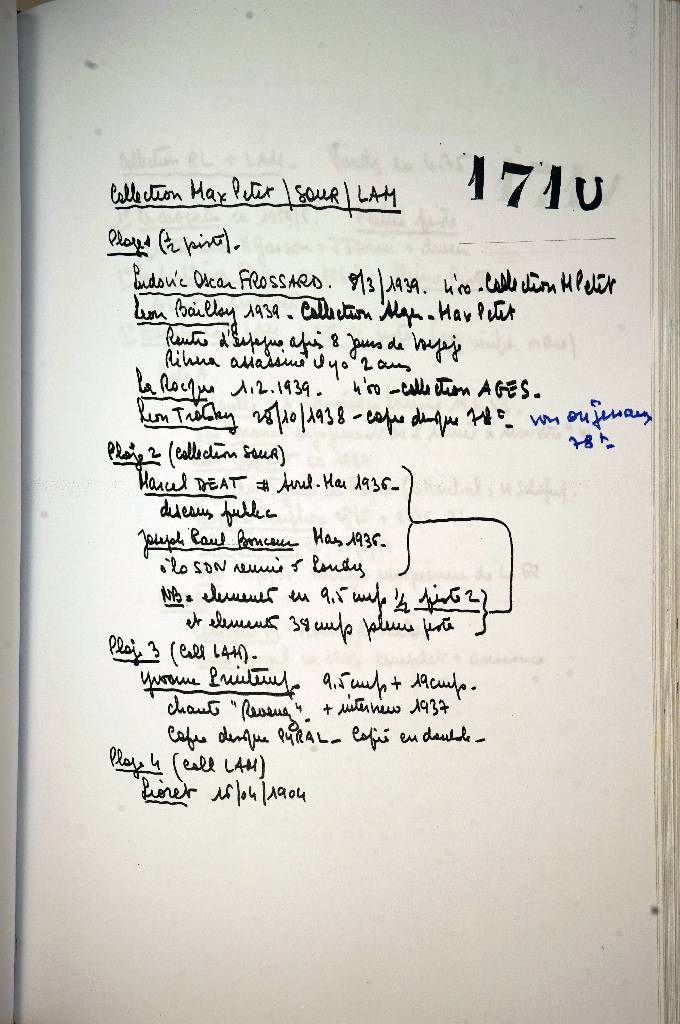 Collection Max Petit / SOUR / LAM
171U
Plage 1 (½ piste).
Ludovic Oscar FROSSARD. 8/3/1939. 4'00 - Collection M Petit
Leon Bailby 1939 - Collection - Max Petit
Rentre d'Espagne après 8 jours de voyage
Rihera assassiné il y a 2 ans
La Rocque 1.2.1939. 4'00 - collection AGES.
Leon Trotsky 28/10/1938 - copie disque 78t
78t
Plage 2 (collection SOUR)
Marcel DEAT # Avril-Mai 1936 -
discours public
Joseph Paul Boncour Mars 1936 -
à la SDN reunie à Londres
NB = elements en 9.5 cm/s ½ piste 2
et elements 38 cm/s pleine piste
Plage 3 (Coll LAM).
Yvonne Printemps 9.5 cm/s + 19 cm/s.
chante "Revenez". + interview 1937
Copie disque PYRAL - Copié en double -
Plage 4 (coll LAM)
Lioret 16/04/1904